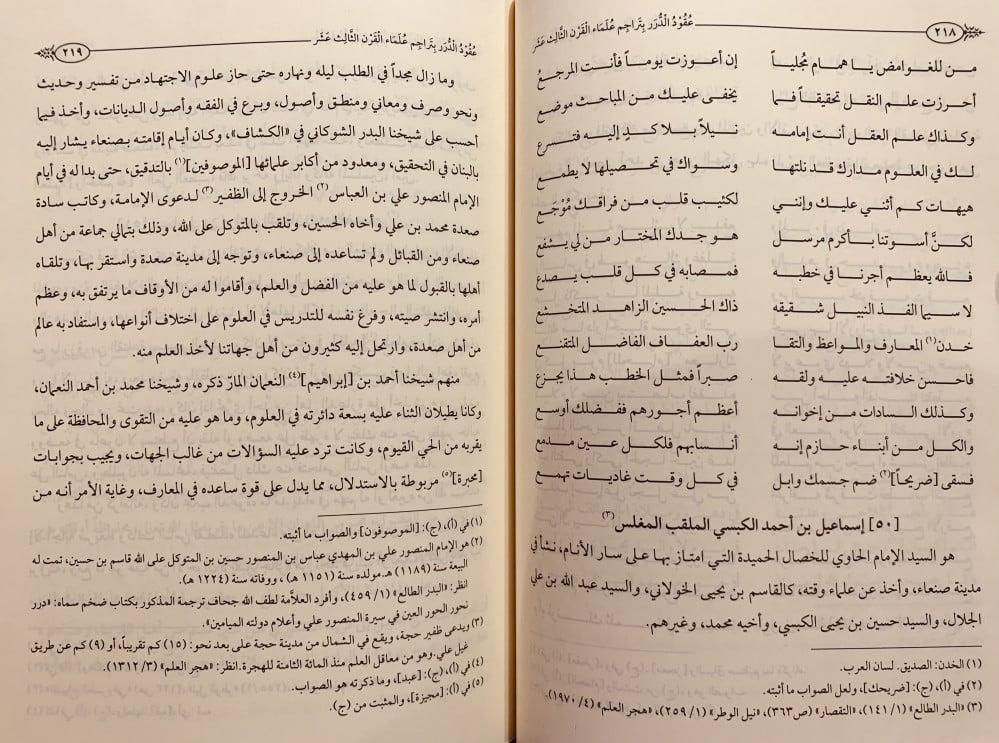 ٢١٨
عُقُودُ الدُّرَر بِتَراجِم عُلَمَاء الْقَرْن الثَّالِث عَشَر
من للغوامض يا همام مُجلياً إن أعوزت يوماً فأنت المرجعُ
أحرزت علم النقل تحقيقاً فما يخفى عليك من المباحث موضع
وكذاك علم العقل أنت إمامه نيلاً بلا كدٍ إليه فتسرع
لك في العلوم مدارك قد نلتها وسواك في تحصيلها لا يطمع
هيهات كم أثني عليك وإنني لكثيب قلب من فراقك مُوْجَع
لكنَّ أسوتنا بأكرم مرسل هو جدك المختار من لي يشفع
فالله يعظم أجرنا في خطبه فمصابه في كل قلب يصدع
لا سيما الفذ النبيل شقيقه ذاك الحسين الزاهد المتخشع
خدن(١) المعارف والمواعظ والتقا رب العفاف الفاضل المتقنع
فاحسن خلافته عليه ولقه صبراً فمثل الخطب هذا يجزع
وكذلك السادات من إخوانه أعظم أجورهم ففضلك أوسع
والكل من أبناء حازم إنه أنسابهم فلكل عين مدمع
فسقى [ضريحاً](٢) ضم جسمك وابل في كل وقت غاديات تهمع
[٥٠] إسماعيل بن أحمد الكبسي الملقب المغلس(٣)
هو السيد الإمام الحاوي للخصال الحميدة التي امتاز بها على سار الأنام، نشأ في
مدينة صنعاء، وأخذ عن علماء وقته، كالقاسم بن يحيى الخولاني، والسيد عبد الله بن علي
الجلال، والسيد حسين بن يحيى الكبسي، وأخيه محمد، وغيرهم.
(١) الخدن: الصديق. لسان العرب.
(٢) في (أ)، (ج): [ضريحك]، ولعل الصواب ما أثبته.
(٣) «البدر الطالع» (١/ ١٤١)، «التقصار» (ص٣٦٣)، «نيل الوطر» (١/ ٢٥٩)، «هجر العلم» (٤/ ١٩٧٠).
عُقُودُ الدُّرَر بِتَراجِم عُلَمَاء الْقَرْن الثَّالِث عَشَر
٢١٩
وما زال مجداً في الطلب ليله ونهاره حتى حاز علوم الاجتهاد من تفسير وحديث
ونحو وصرف ومعاني ومنطق وأصول، وبرع في الفقه وأصول الديانات، وأخذ فيما
أحسب على شيخنا البدر الشوكاني في «الكشاف»، وكان أيام إقامته بصنعاء يشار إليه
بالبنان في التحقيق، ومعدود من أكابر علمائها [الموصوفين](١) بالتدقيق، حتى بدا له في أيام
الإمام المنصور علي بن العباس(٢) الخروج إلى الظفير(٣) لدعوى الإمامة، وكاتب سادة
صعدة محمد بن علي وأخاه الحسين، وتلقب بالمتوكل على الله، وذلك بتمالي جماعة من أهل
صنعاء ومن القبائل ولم تساعده إلى صنعاء، وتوجه إلى مدينة صعدة واستقر بها، وتلقاه
أهلها بالقبول لما هو عليه من الفضل والعلم، وأقاموا له من الأوقاف ما يرتفق به، وعظم
أمره، وانتشر صيته، وفرغ نفسه للتدريس في العلوم على اختلاف أنواعها، واستفاد به عالم
من أهل صعدة، وارتحل إليه كثيرون من أهل جهاتنا لأخذ العلم منه.
منهم شيخنا أحمد بن [إبراهيم](٤) النعمان المارّ ذكره، وشيخنا محمد بن أحمد النعمان،
وكانا يطيلان الثناء عليه بسعة دائرته في العلوم، وما هو عليه من التقوى والمحافظة على ما
يقربه من الحي القيوم، وكانت ترد عليه السؤالات من غالب الجهات، ويجيب بجوابات
[محبرة](٥) مربوطة بالاستدلال، مما يدل على قوة ساعده في المعارف، وغاية الأمر أنه من
(١) في (أ)، (ج): [الموصوفون] والصواب ما أثبته.
(٢) هو الإمام المنصور علي بن المهدي عباس بن المنصور حسين بن المتوكل على الله قاسم بن حسين، تمت له
البيعة سنة (١١٨٩ هـ). مولده سنة (١١٥١ هـ)، ووفاته سنة (١٢٢٤ هـ).
انظر: «البدر الطالع» (١/ ٤٥٩)، وأفرد العلاَّمة لطف الله جحاف ترجمة المذكور بكتاب ضخم سماه: «درر
نحور الحور العين في سيرة المنصور علي وأعلام دولته الميامين».
(٣) ويدعى ظفير حجة، ويقع في الشمال من مدينة حجة على بعد نحو: (١٥) كم تقريباً، أو (٩) كم عن طريق
غيل علي. وهو من معاقل العلم منذ المائة الثامنة للهجرة. انظر: «هجر العلم» (٣/ ١٣١٢).
(٤) في (أ)، (ج): [عبد]، وما ذكرته هو الصواب.
(٥) في (أ): [مجيزة]، والمثبت من (ج).